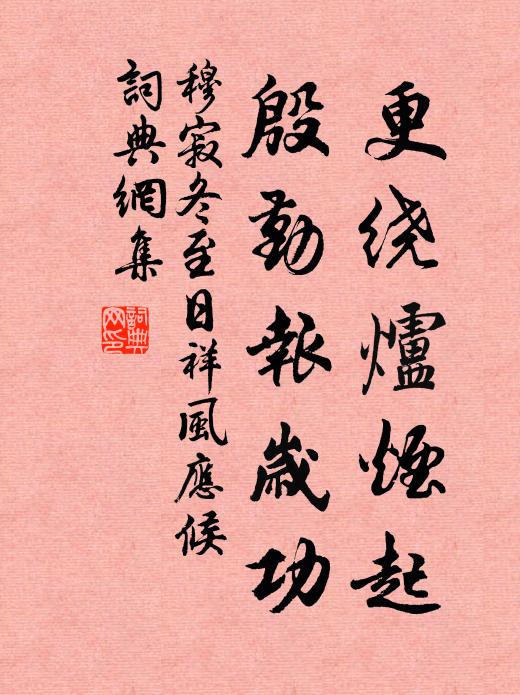 更绕爐煙起
殷勤報歲功
穆寂冬至日祥風應候
詞典網集
詞典网印